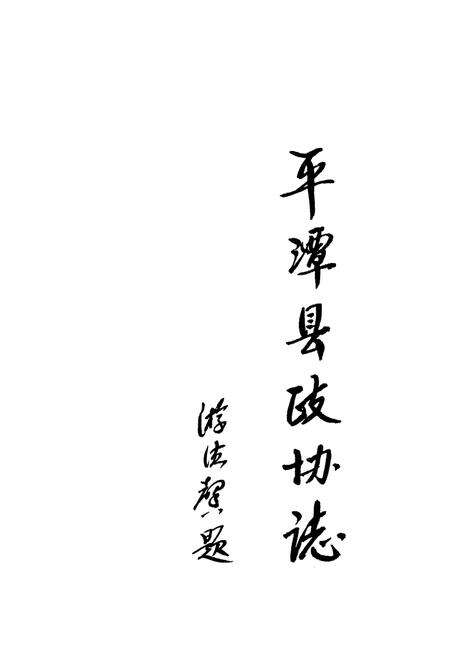 平潭县政协誌
游德馨题